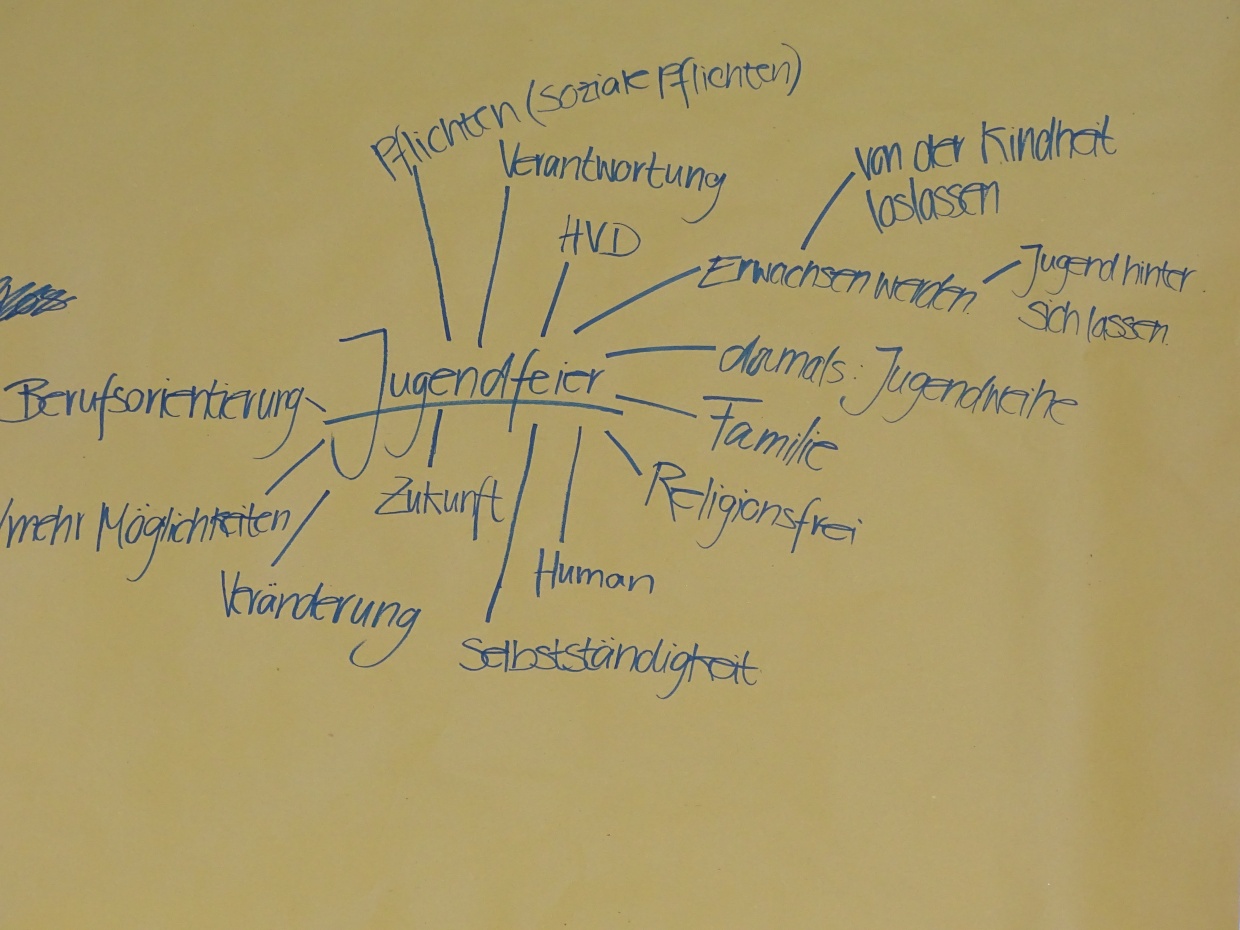 Pflichten (soziale Pflichten)
Verantwortung
HVD
von der Kindheit
loslassen
Erwachsen werden
Jugend hinter
sich lassen
Jugendfeier
damals: Jugendweihe
Berufsorientierung
Familie
Religionsfrei
Zukunft
mehr Möglichkeiten
Human
Veränderung
Selbstständigkeit